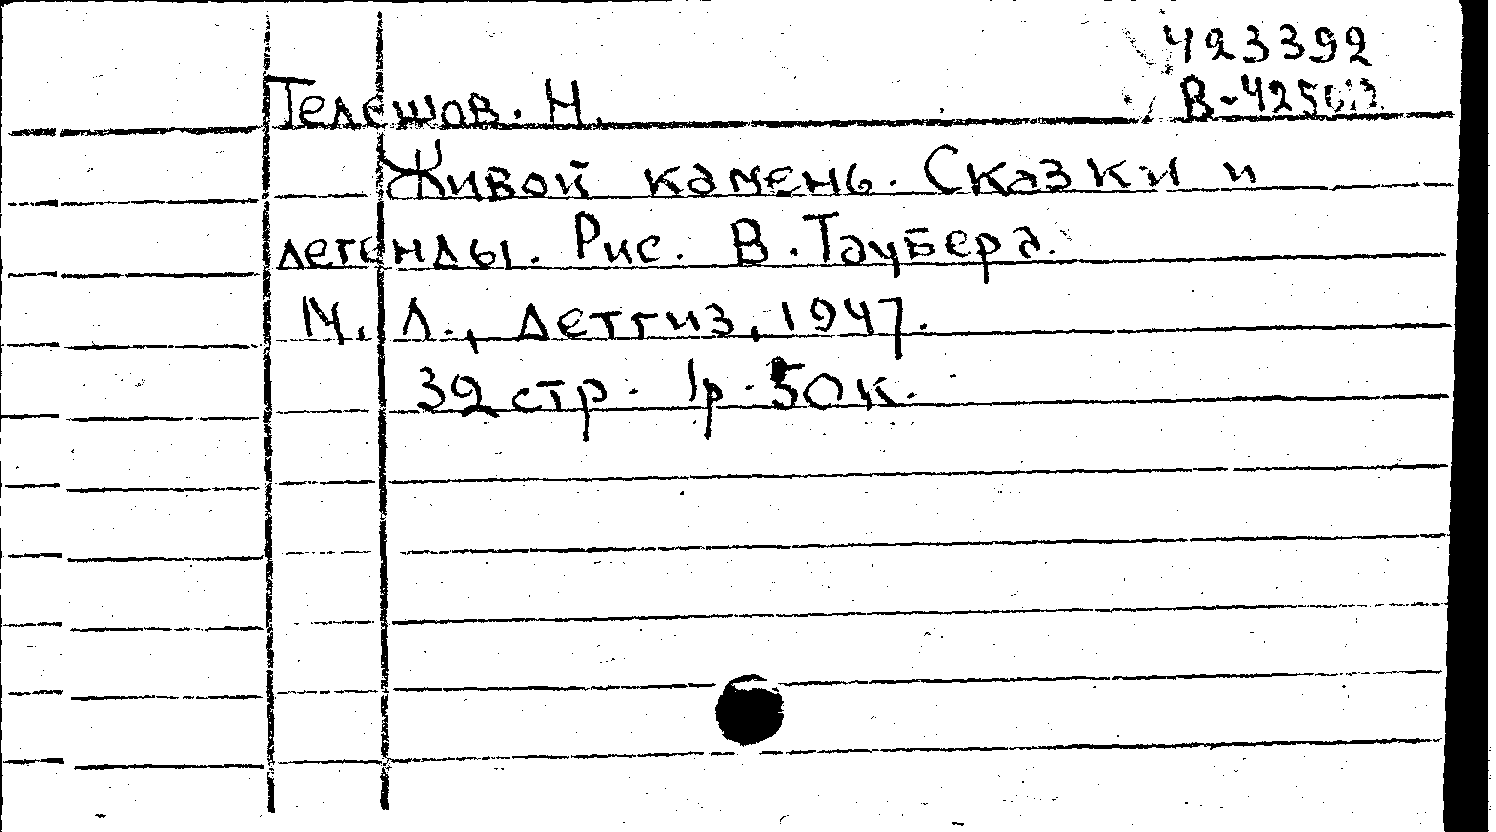 423392
Телешов. Н.
Живой камень. Сказки и
легенды. Рис. В. Таубера.
М. Л., Детгиз, 1947.
32 стр. 1р. 50к.